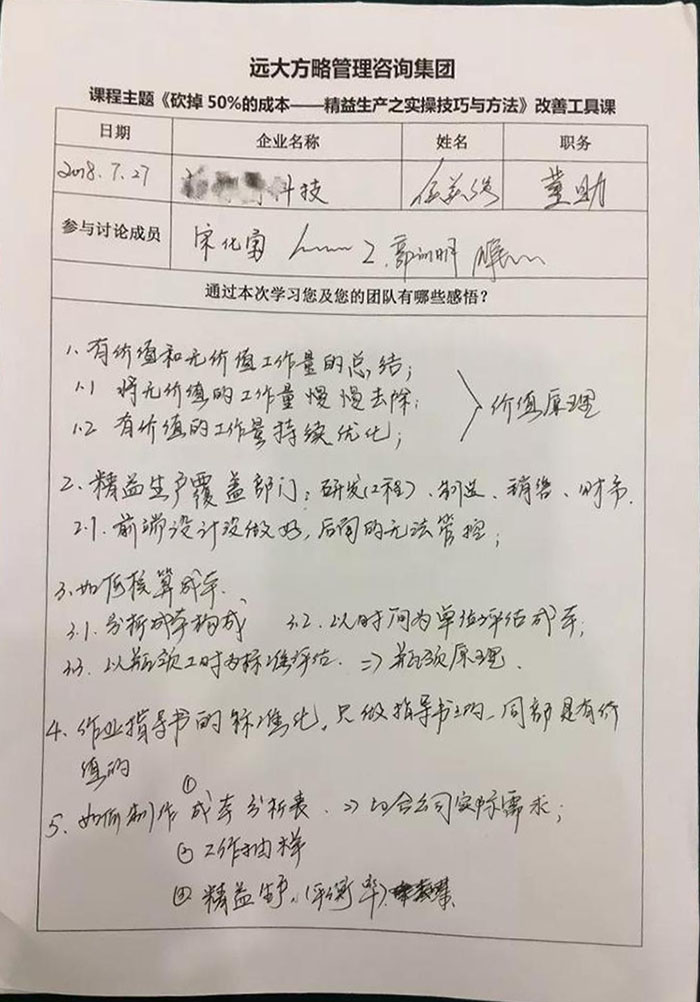 远大方略管理咨询集团
课程主题《砍掉 50%的成本——精益生产之实操技巧与方法》改善工具课
日期 企业名称 姓名 职务
2018.7.27 科技 董助
参与讨论成员 宋化富
通过本次学习您及您的团队有哪些感悟？
1、有价值和无价值工作量的总结；
1.1 将无价值的工作量慢慢去除；
1.2 有价值的工作量持续优化；
价值原理
2、精益生产覆盖部门：研发(工程)、制造、销售、财务.
2.1. 前端设计没做好，后面的无法管控；
3.如何核算成本.
3.1. 分析成本构成 3.2. 以时间为单位评估成本；
3.3. 以瓶颈工时为标准评估. => 瓶颈原理.
4、作业指导书的标准化，只做指导书上的，同部是有价
值的
5、如何制作①成本分析表. => 切合公司实际需求；
② 工作抽样
③ 精益生产.(平衡率)